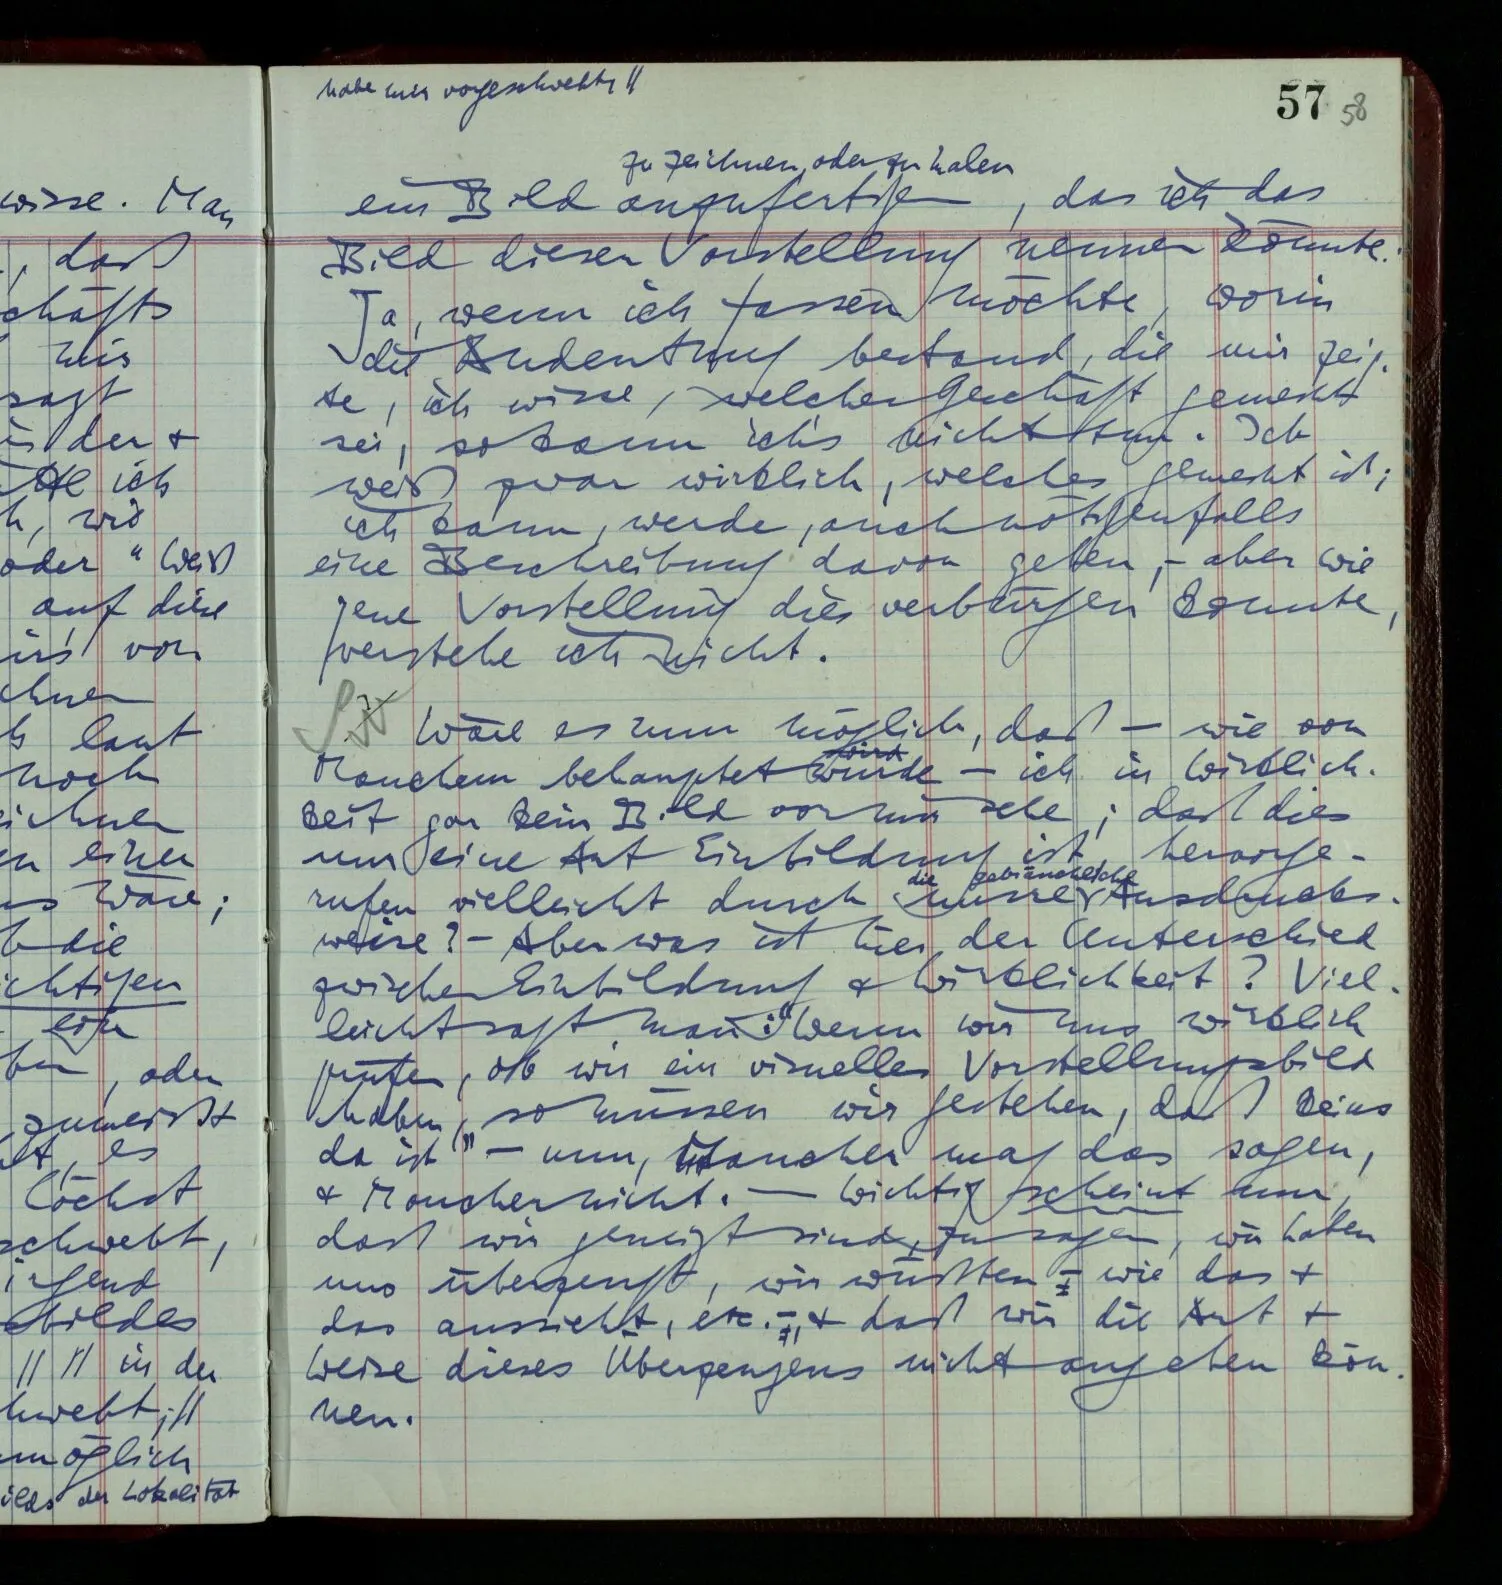 wisse. Man
, daß
chäfts
mir
sagt
in der &
ich
h, wie
oder "Weiß
auf diese
von
chnen
laut
noch
eichnen
en einer
wäre;
die
ichtigen
eine
ben, oder
zumeist
, es
löchst
schwebt,
irgend
bildes
// // in der
hwebt; //
unmöglich
ilds der Lokalität
habe mir vorgeschwebt //
57 58
zu zeichnen, oder zu malen
ein Bild anzufertigen, das ich das
Bild dieser Vorstellung nennen könnte.
Ja, wenn ich fassen möchte, worin
die Andeutung bestand, die mir zeig-
te, ich wisse, welches Geschäft gemeint
sei, so kann ich's nicht tun. Ich
weiß zwar wirklich, welches gemeint ist;
ich kann, werde, auch nötigenfalls
eine Beschreibung davon geben, – aber wie
jene Vorstellung dies verbürgen konnte,
verstehe ich nicht.
Wäre es nun möglich, daß – wie von
wird
Manchem behauptet wurde – ich in Wirklich-
keit gar kein Bild vor mir sehe; daß dies
nur eine Art Einbildung ist, hervorge-
die gebräuchliche
rufen vielleicht durch unsre Ausdrucks-
weise? – Aber was ist hier der Unterschied
zwischen Einbildung & Wirklichkeit? Viel-
leicht sagt man: "Wenn wir uns wirklich
prüfen, ob wir ein visuelles Vorstellungsbild
haben, so müssen wir gestehen, daß keins
da ist" – nun, Mancher mag das sagen,
& Mancher nicht. — Wichtig scheint nur,
daß wir geneigt sind, zu sagen, wir haben
uns überzeugt, wir wüßten – wie das &
das aussieht, etc. –, & daß wir die Art &
Weise dieses Überzeugens nicht angeben kön-
nen.